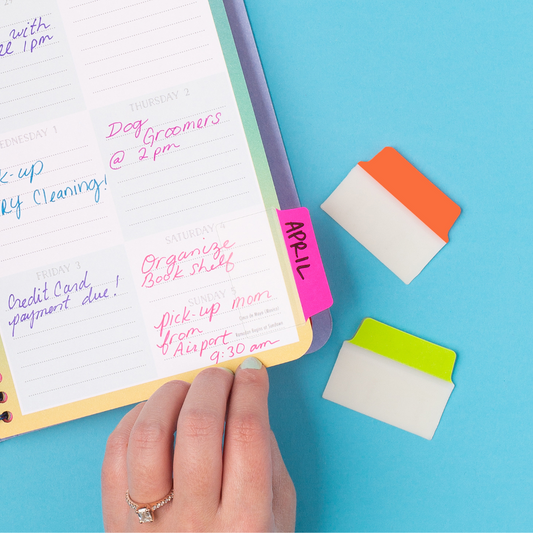 with
1pm
WEDNESDAY 1
-up
Cleaning!
THURSDAY 2
Dog
Groomers
@ 2pm
FRIDAY 3
Credit Card
payment due!
SATURDAY 4
Organize
Book shelf
SUNDAY 5
pick-up mom
from
Airport
9:30 am
APRIL